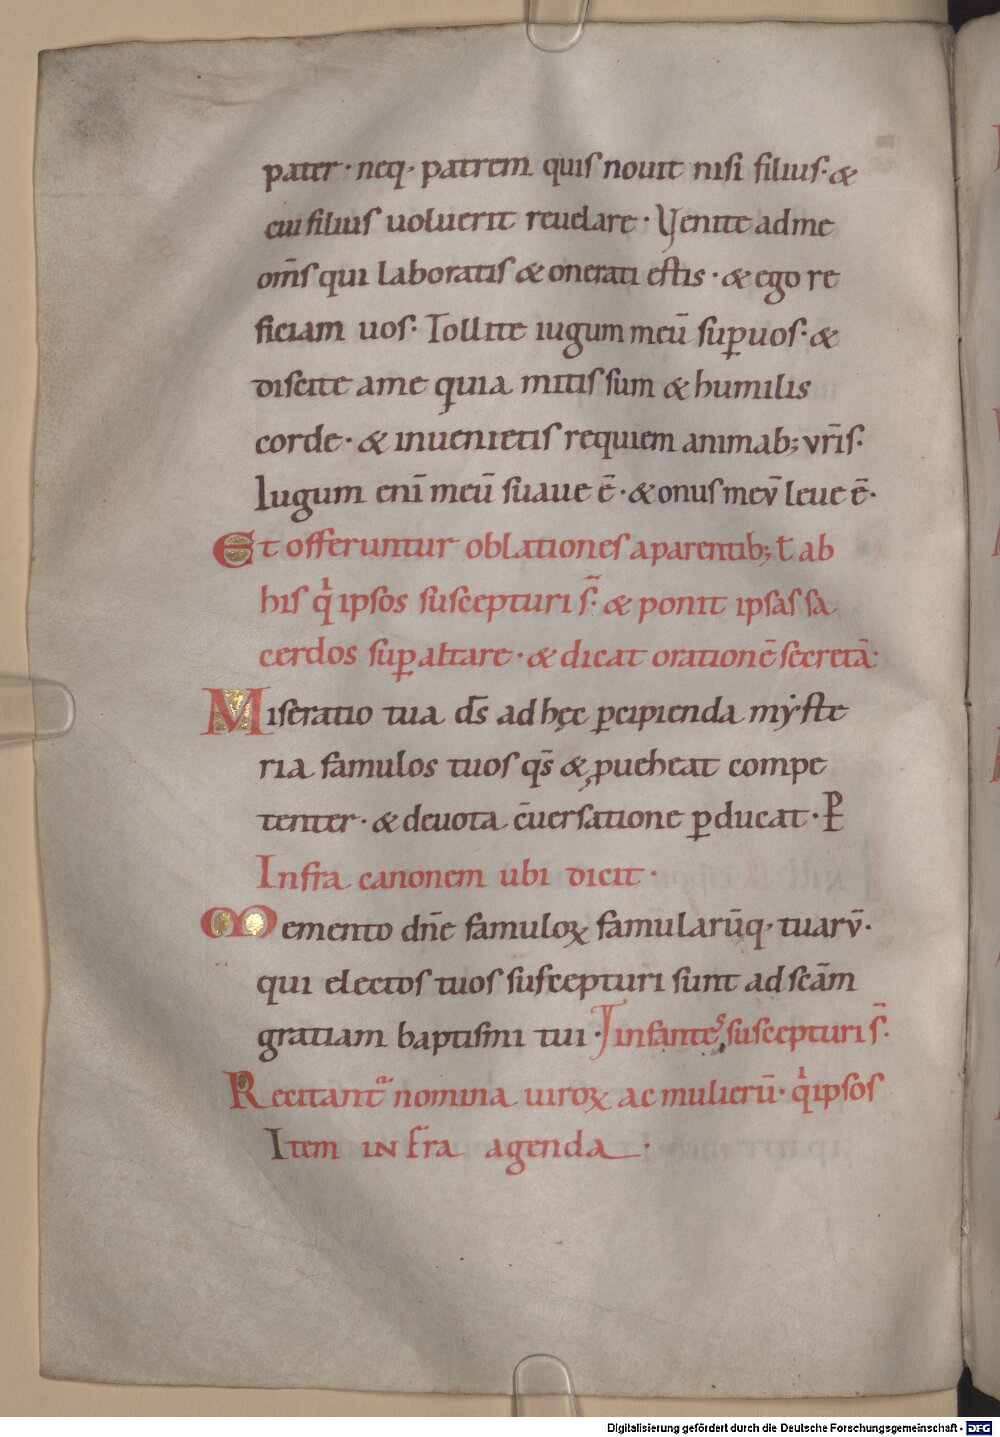 pater · neq · patrem quis nouit nisi filius · &
cui filius uoluerit reuelare · Venite ad me
om̄s qui laboratis & onerati estis · & ego re
ficiam uos · Tollite iugum meū sup̲ uos · &
discite a me quia mitis sum & humilis
corde · & inuenietis requiem animab; vr̄is ·
Iugum eni̅ meū suaue ē · & onus mev̄ leue ē ·
Et offeruntur oblationes a parentib; t̄ ab
his qͥ ipsos suscepturi s̄ · & ponit ipsas sa
cerdos sup̲ altare · & dicat orationē secretā :
Miseratio tua ds̄ ad hęc p̲cipienda mẏste
ria famulos tuos qs̄ & ꝓueheat compe
tenter · & deuota c̄uersatione p̲ducat · P̲
Infra canonem ubi dicit ·
Memento dn̄e famuloꝝ famularūq · tuarv̄ ·
qui electos tuos suscepturi sunt ad scām
gratiam baptismi tui · I infantes suscepturi s̄ ·
Recitant᷑ nomina uiroꝝ ac mulierū · qͥ ipsos
Item infra agenda ·
Digitalisierung gefördert durch die Deutsche Forschungsgemeinschaft - DFG